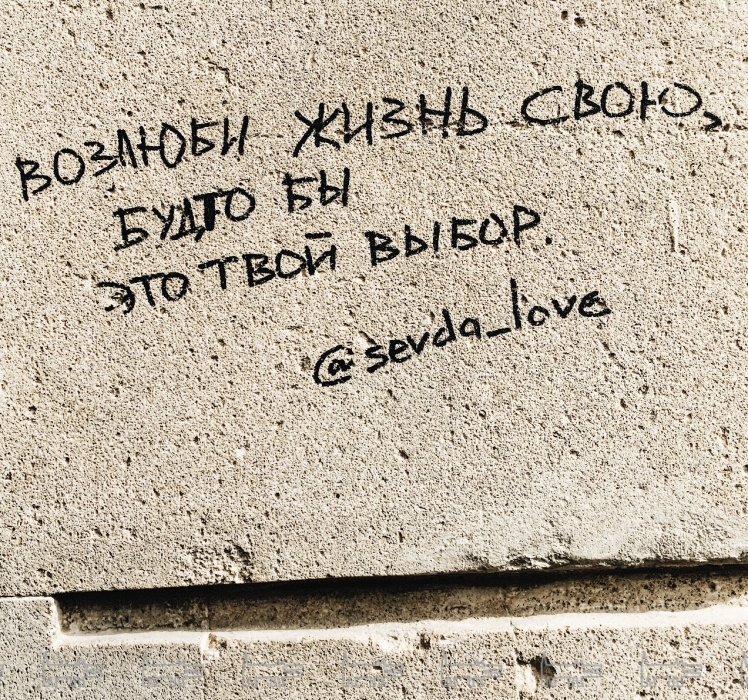 ВОЗЛЮБИ ЖИЗНЬ СВОЮ,
БУДТО БЫ
ЭТО ТВОЙ ВЫБОР.
@sevda_love